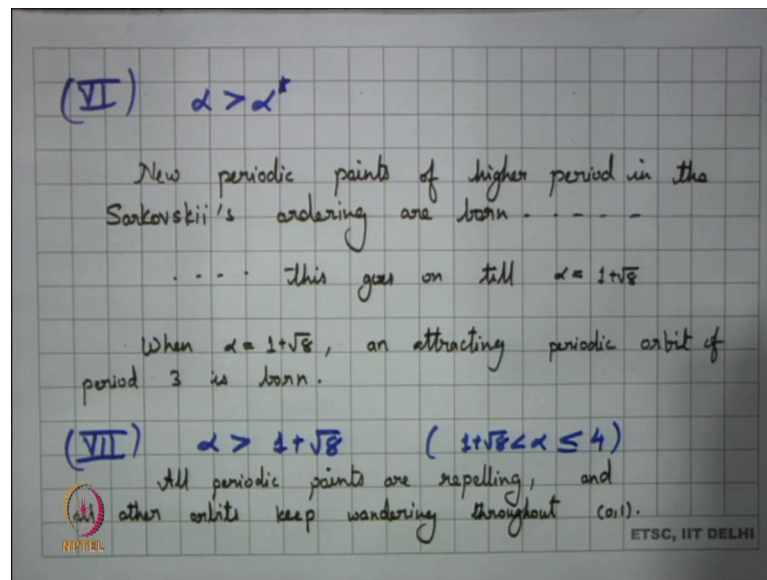 (VI) α > α*
New periodic points of higher period in the
Sarkovskii's ordering are born - - - - -
. . . . this goes on till α = 1+√8
When α = 1+√8, an attracting periodic orbit of
period 3 is born.
(VII) α > 1+√8 ( 1+√8 < α ≤ 4 )
All periodic points are repelling, and
all other orbits keep wandering throughout (0,1).
NPTEL
ETSC, IIT DELHI